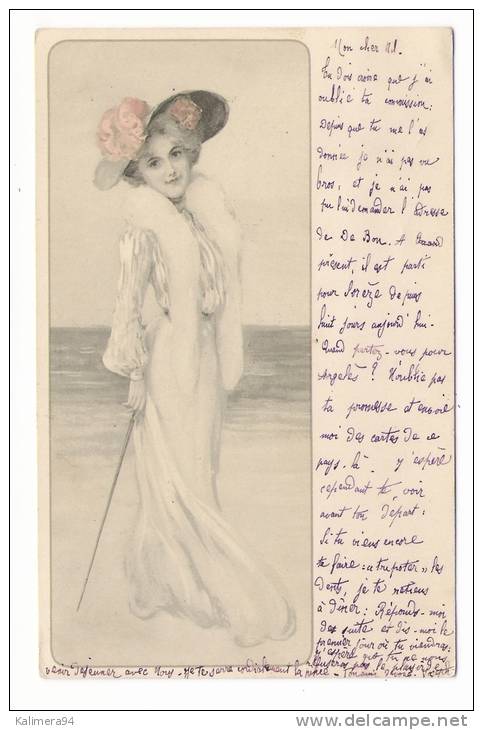 Mon cher Ad.
Tu dois croire que j'ai
oublié ta commission:
Depuis que tu me l'as
donnée je n'ai pas vu
bros, et je n'ai pas
pu lui demander l'adresse
de De Bon. A
présent, il est parti
pour Sorèze depuis
huit jours aujourd'hui-
Quand partez-vous pour
Argelès? N'oublie pas
ta promesse et envoie
moi des cartes de ce
pays-là. J'espère
cependant te voir
avant ton départ:
Si tu viens encore
te faire "tripoter" les
dents, je te retiens
à dîner: Réponds-moi
de suite et dis-moi le
premier jour où tu viendras;
j'espère que tu ne nous
refuseras pas le plaisir de
venir déjeuner avec nous. Je te serre cordialement la main - Ton ami
Kalimera94
www.delcampe.net